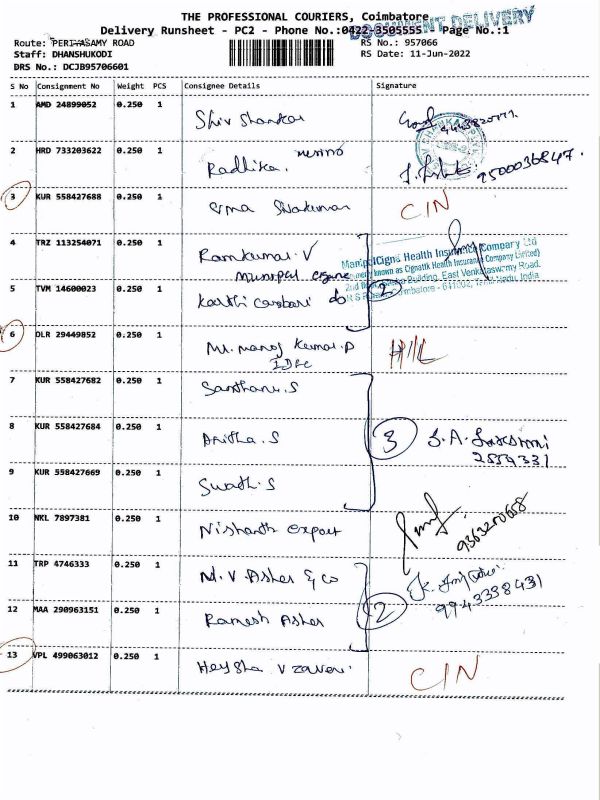 THE PROFESSIONAL COURIERS, Coimbatore
DOCUMENT DELIVERY
Delivery Runsheet - PC2 - Phone No.:0422-3505555 Page No.:1
Route: PERIYASAMY ROAD RS No.: 957066
Staff: DHANSHUKODI RS Date: 11-Jun-2022
DRS No.: DCJB95706601
S No Consignment No Weight PCS Consignee Details Signature
1 AMD 24899052 0.250 1 Shiv Shankar
2 HRD 733203622 0.250 1 Radhika.
3 KUR 558427688 0.250 1 Uma Sivakumar CIN
4 TRZ 113254071 0.250 1 Ramkumar. V
ManipalCigna Health Insurance Company Ltd
(Formerly known as CignaTTK Health Insurance Company Limited)
East Venkataswamy Road,
Coimbatore - 641002, Tamil Nadu, India
5 TVM 14600023 0.250 1 Karthi do 2
6 DLR 29449852 0.250 1 Mr. Manoj Kumar. P H/L
7 KUR 558427682 0.250 1 Santhanu. S
8 KUR 558427684 0.250 1 Anitha. S 3
2554331
9 KUR 558427669 0.250 1 Swathi. S
10 NKL 7897381 0.250 1 Nishanth Export
11 TRP 4746333 0.250 1 M. V Asher & Co
9943338431
12 MAA 290963151 0.250 1 Ramesh Asher 2
13 VPL 499063012 0.250 1 CIN